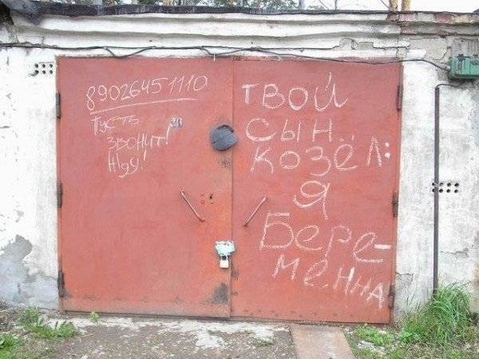 89026451110
Пусть
звонит!
Жду!
ТВОЙ
СЫН
КОЗЁЛ:
Я
БЕРЕ-
МЕННА